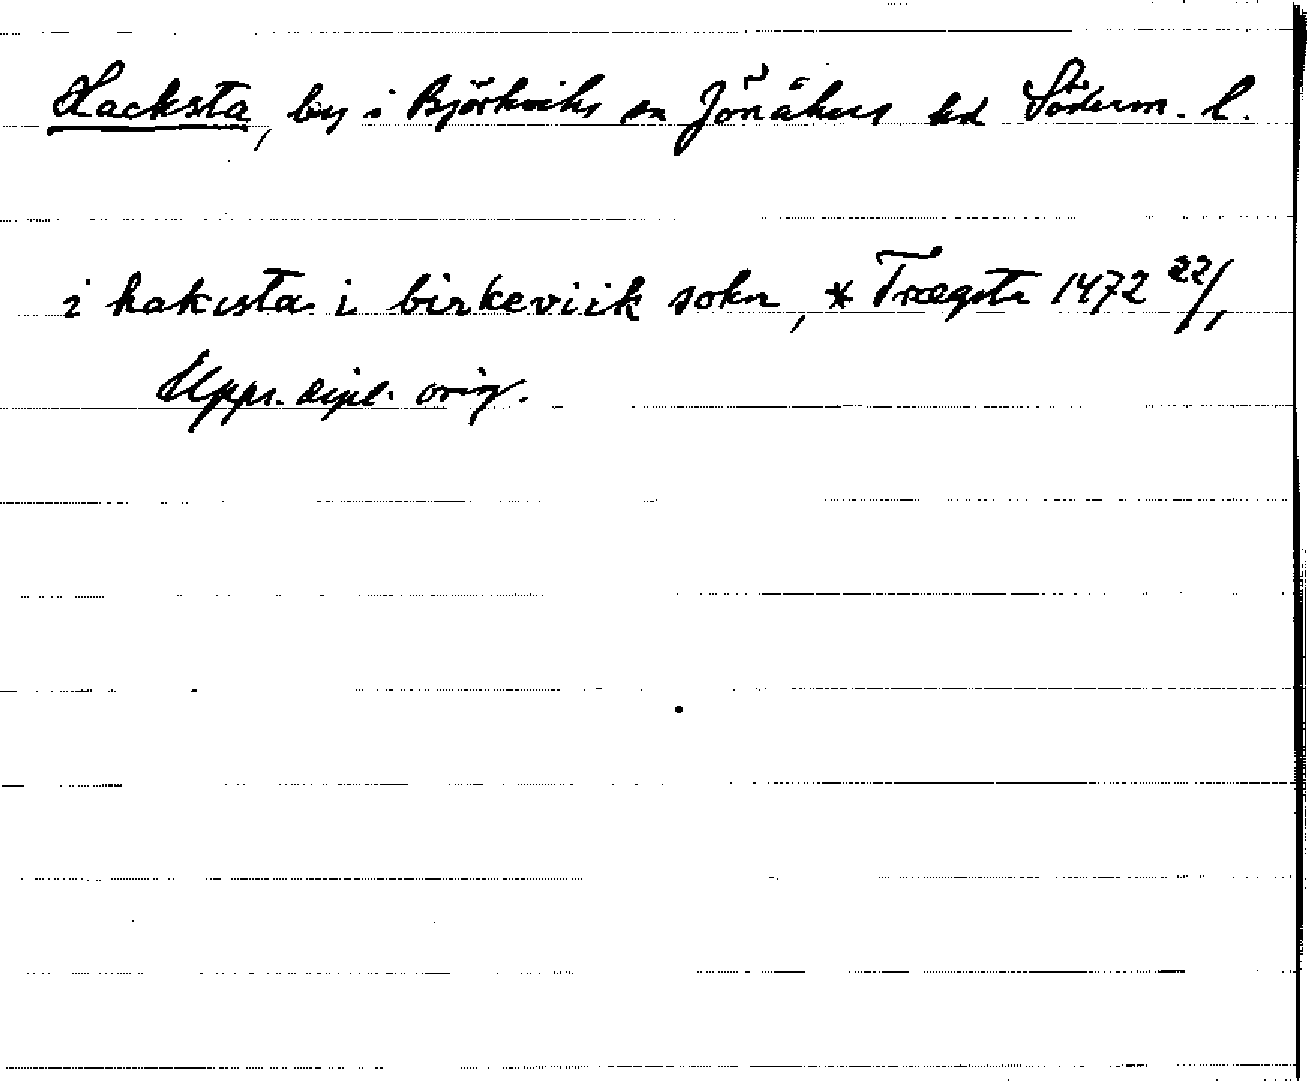 Hacksta, by i Björkviks sn Jönåkers hd Söderm. l.
i hakısta i birkeviik sokn, * Trægsta 1472 22/1
Upps. dipl. orig.